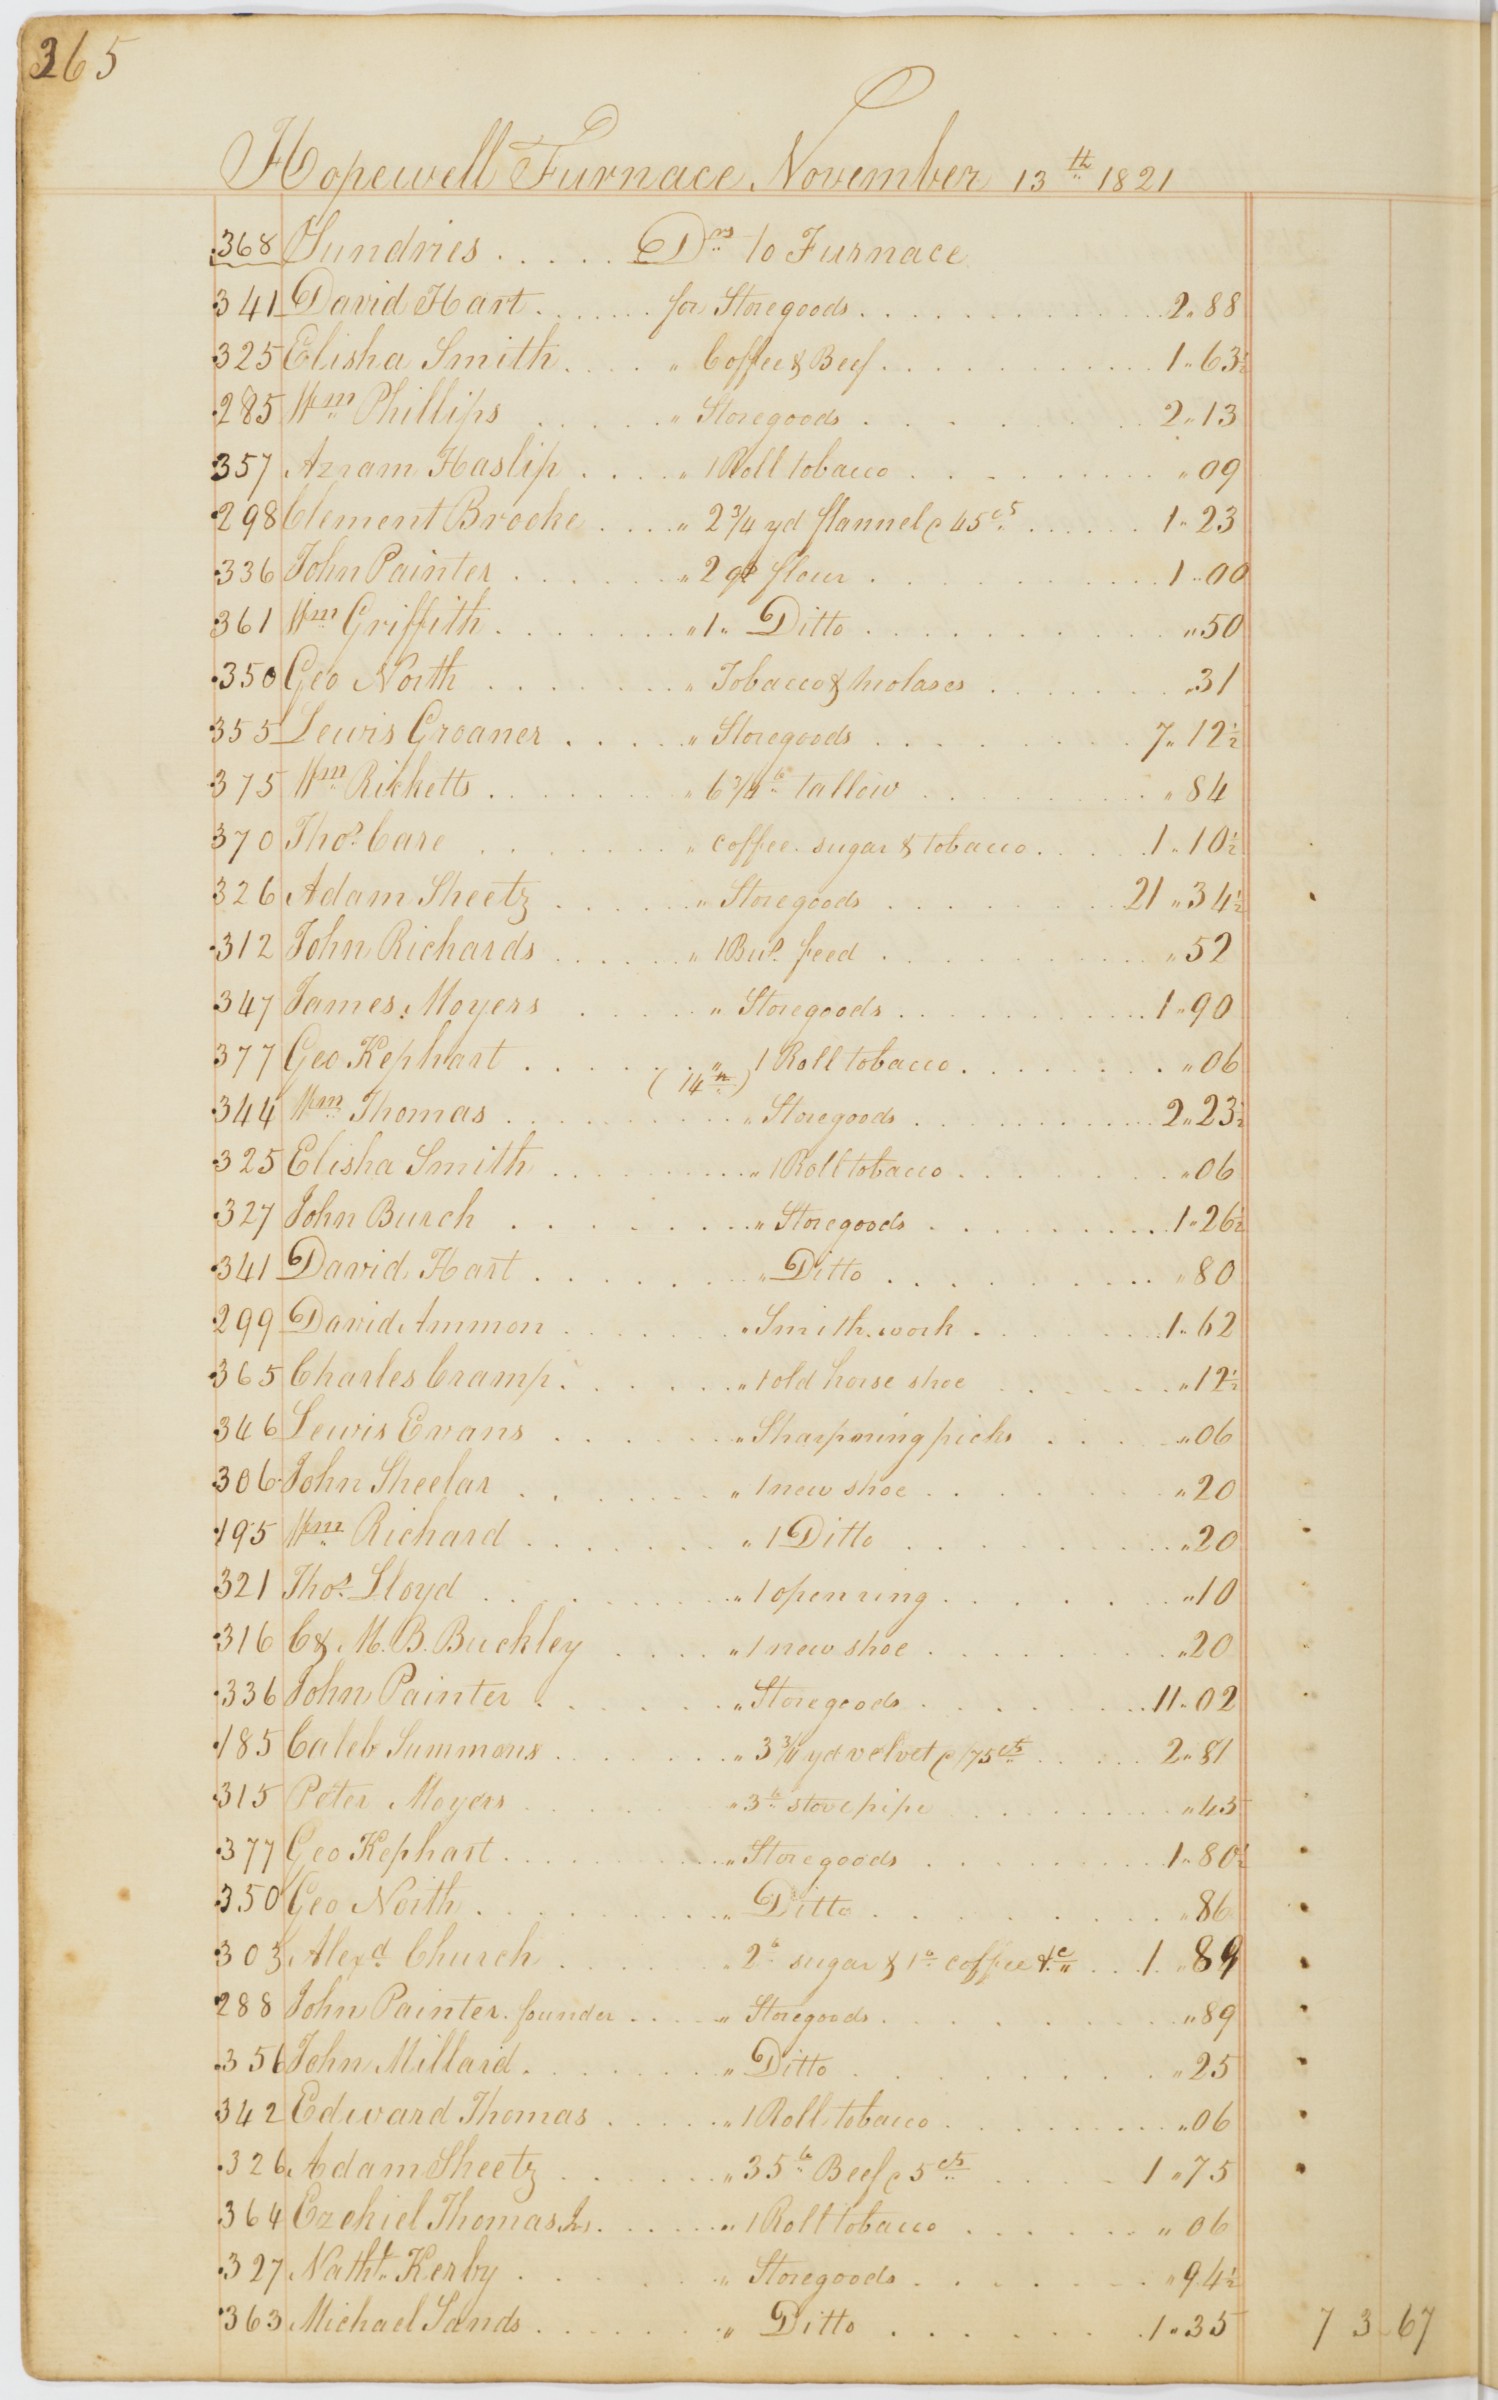 365
Hopewell Furnace November 13th 1821
368 Sundries ..... Drs to Furnace
341 David Hart ....... for Storegoods ............ 2"88
325 Elisha Smith .... " Coffee & Beef ............ 1"63½
285 Wm Phillips ..... " Storegoods ....... 2"13
357 Azram Haslip .... " 1 Roll tobacco .......... "09
298 Clement Brooke .... " 2¾ yd flannel @ 45cs ...... 1"23
336 John Painter ....... " 2 qr flour ........... 1"00
361 Wm Griffith ....... " 1 " Ditto ........... "50
350 Geo North ....... " Tobacco & molases ....... "31
355 Lewis Groaner ..... " Storegoods ......... 7"12½
375 Wm Ricketts ....... " 6¾ lb tallow ......... "84
370 Thos Care ....... " coffee sugar & tobacco ..... 1"10½
326 Adam Sheetz ...... " Storegoods ........ 21"34½
312 John Richards ...... " 1 Bul feed .......... "52
347 James Moyers ..... " Storegoods .......... 1"90
377 Geo Kephart ...... " 1 Roll tobacco ........ "06
(14th)
344 Wm Thomas ......... " Storegoods .......... 2"23½
325 Elisha Smith ........ " 1 Roll tobacco ....... "06
327 John Burch ........ " Storegoods ......... 1"26½
341 David Hart ...... " Ditto ......... "80
299 David Ammon ...... " Smith work ....... 1"62
365 Charles Cramp ...... " 1 old horse shoe ...... "12½
346 Lewis Evans ...... " Sharpning picks .... "06
306 John Sheelar ....... " 1 new shoe ...... "20
195 Wm Richard ....... " 1 Ditto ......... "20
321 Thos Lloyd ........ " 1 open ring ....... "10
316 C & M. B. Buckley .... " 1 new shoe ......... "20
336 John Painter ...... " Storegoods ....... 11"02
185 Caleb Summons ...... " 3¾ yd velvet @ /75cts ..... 2"81
315 Peter Moyers ...... " 3 lb stove pipe ......... "45
377 Geo Kephart ......... " Storegoods ........ 1"80½
350 Geo North ......... " Ditto ........ "86
303 Alexd Church ...... 2 lb sugar & 1 lb coffee &c ... 1"89
288 John Painter. founder .... " Storegoods ......... "89
356 John Millard ....... " Ditto ......... "25
342 Edward Thomas ..... " 1 Roll tobacco ......... "06
326 Adam Sheetz ...... " 35 lb Beef @ 5cts ..... 1"75
364 Ezekiel Thomas Jr ..... " 1 Roll tobacco ...... "06
327 Nathl Kerby ...... " Storegoods ....... "94½
363 Michael Sands ...... " Ditto ....... 1"35 73 67